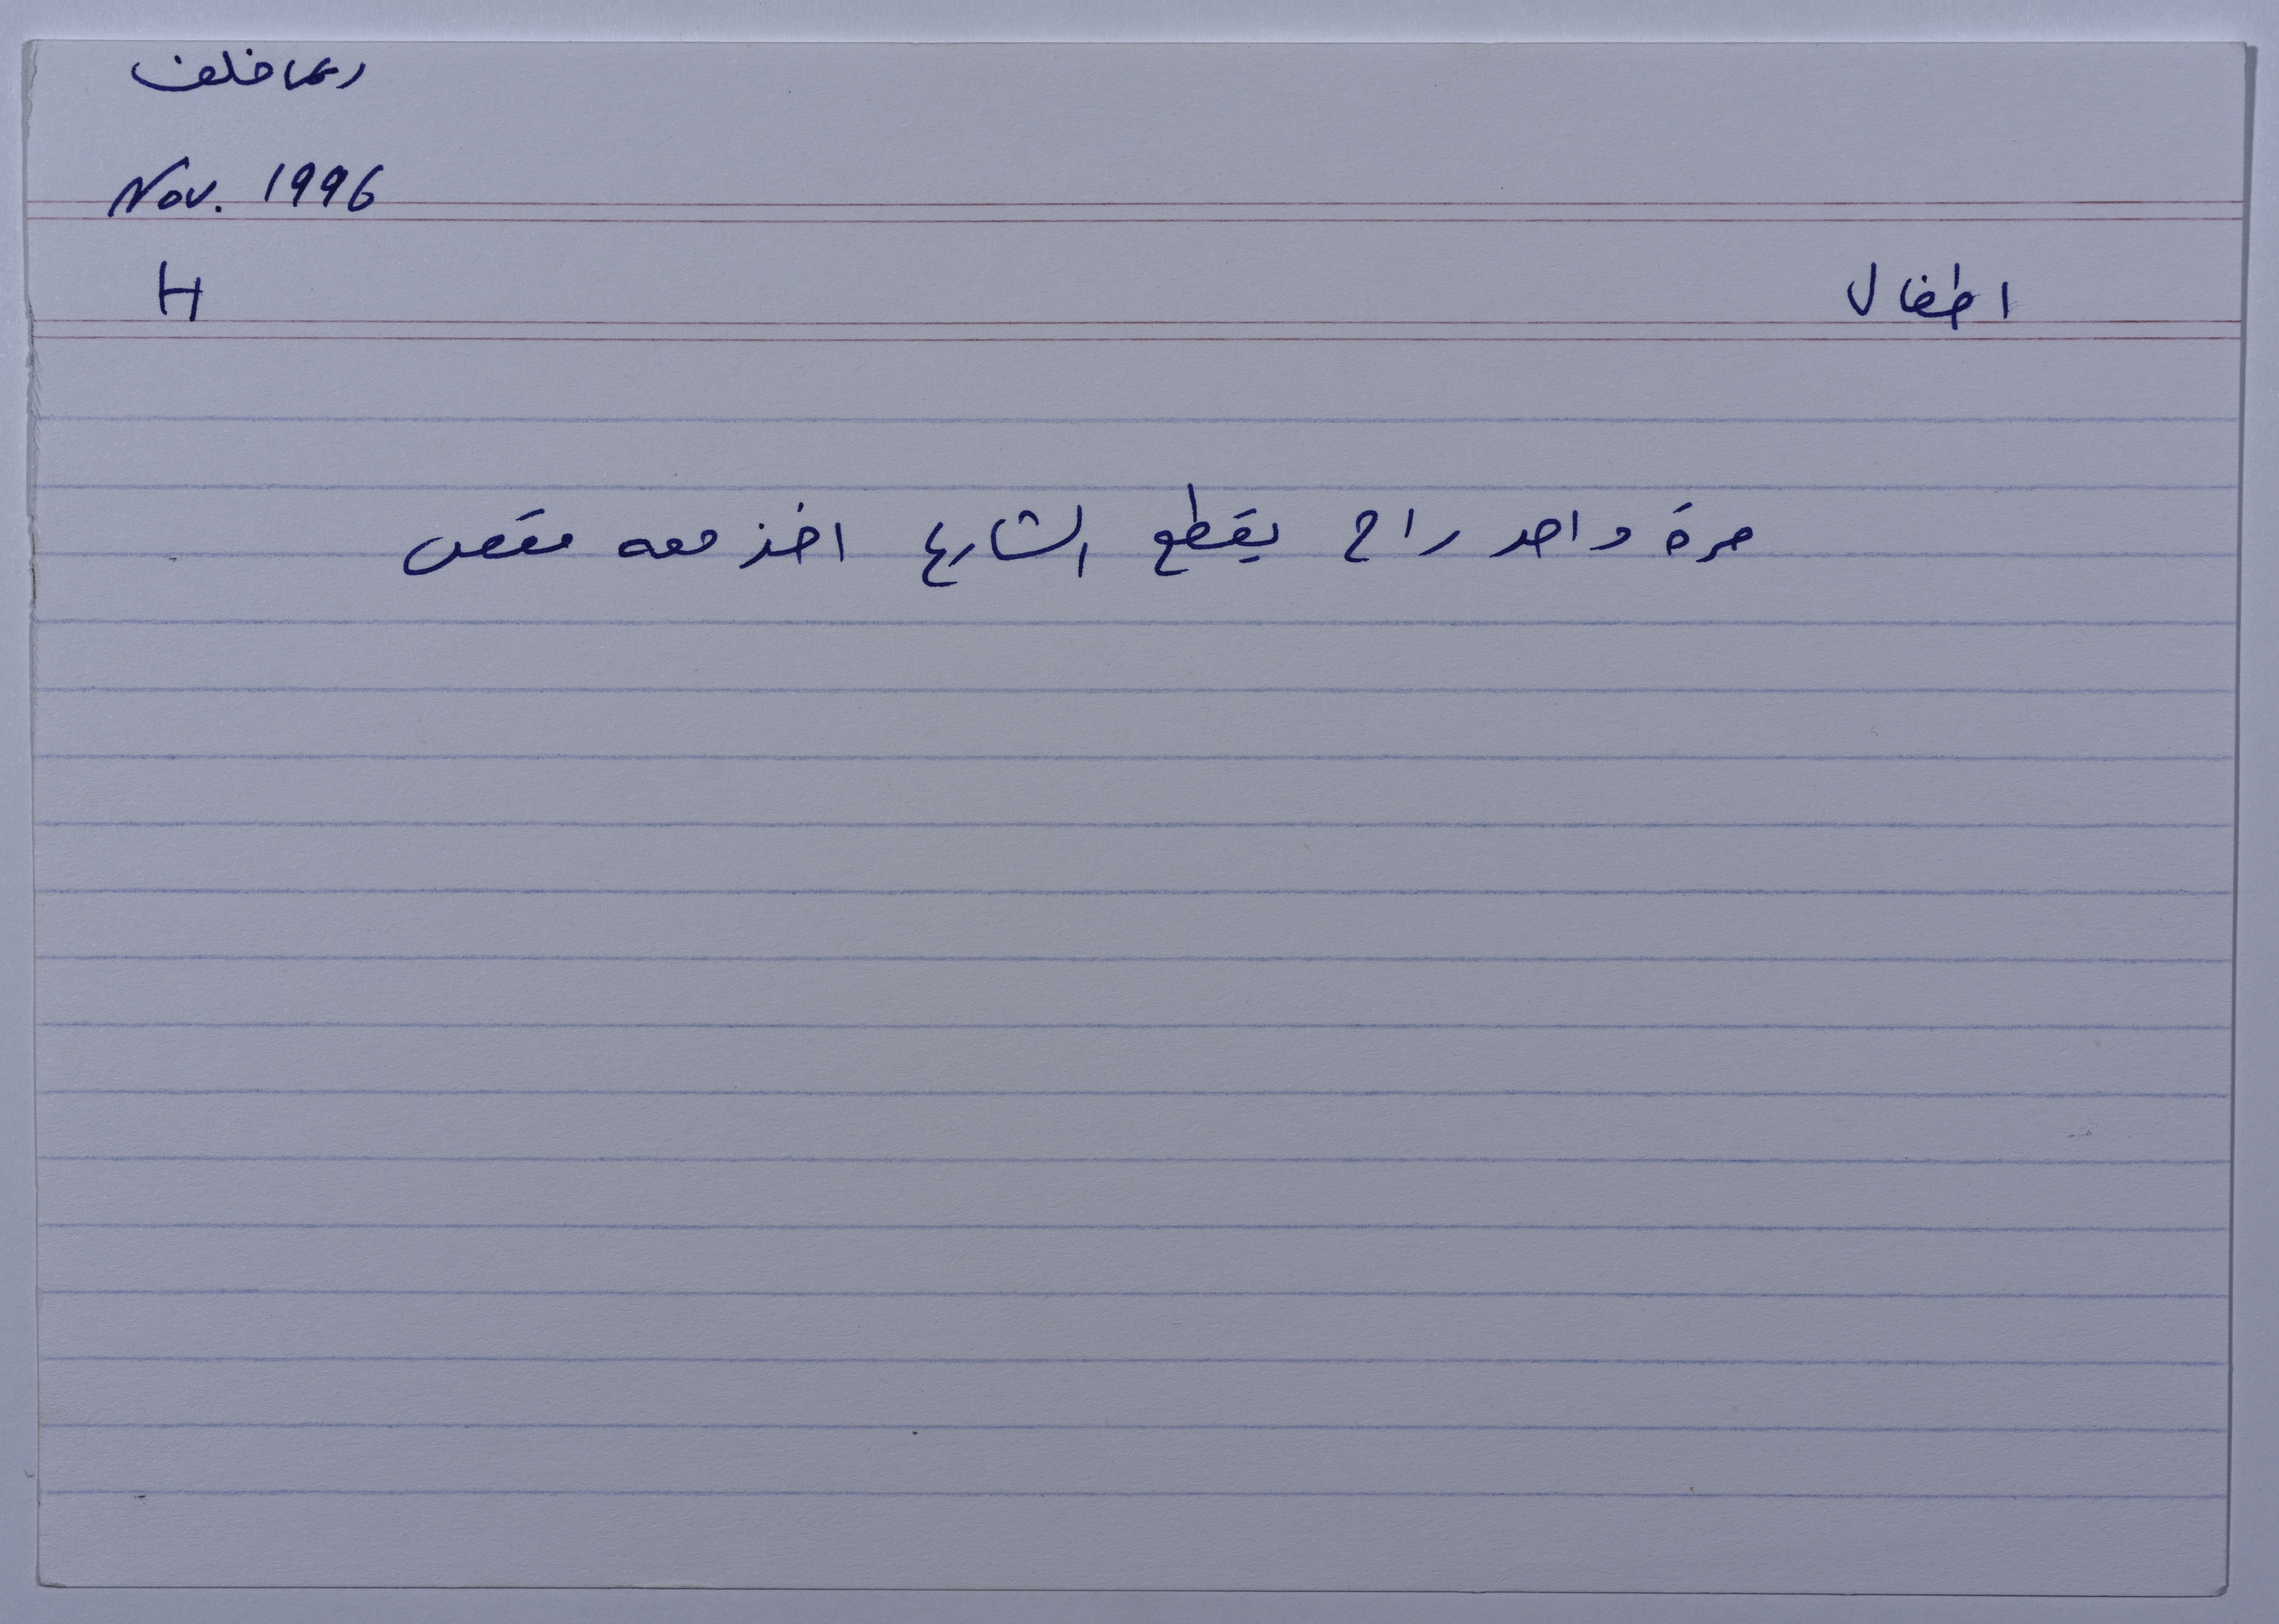 ريما خلف
Nov. 1996
اطفال H
مرة واحد راح يقطع الشارع اخذ معه مقص